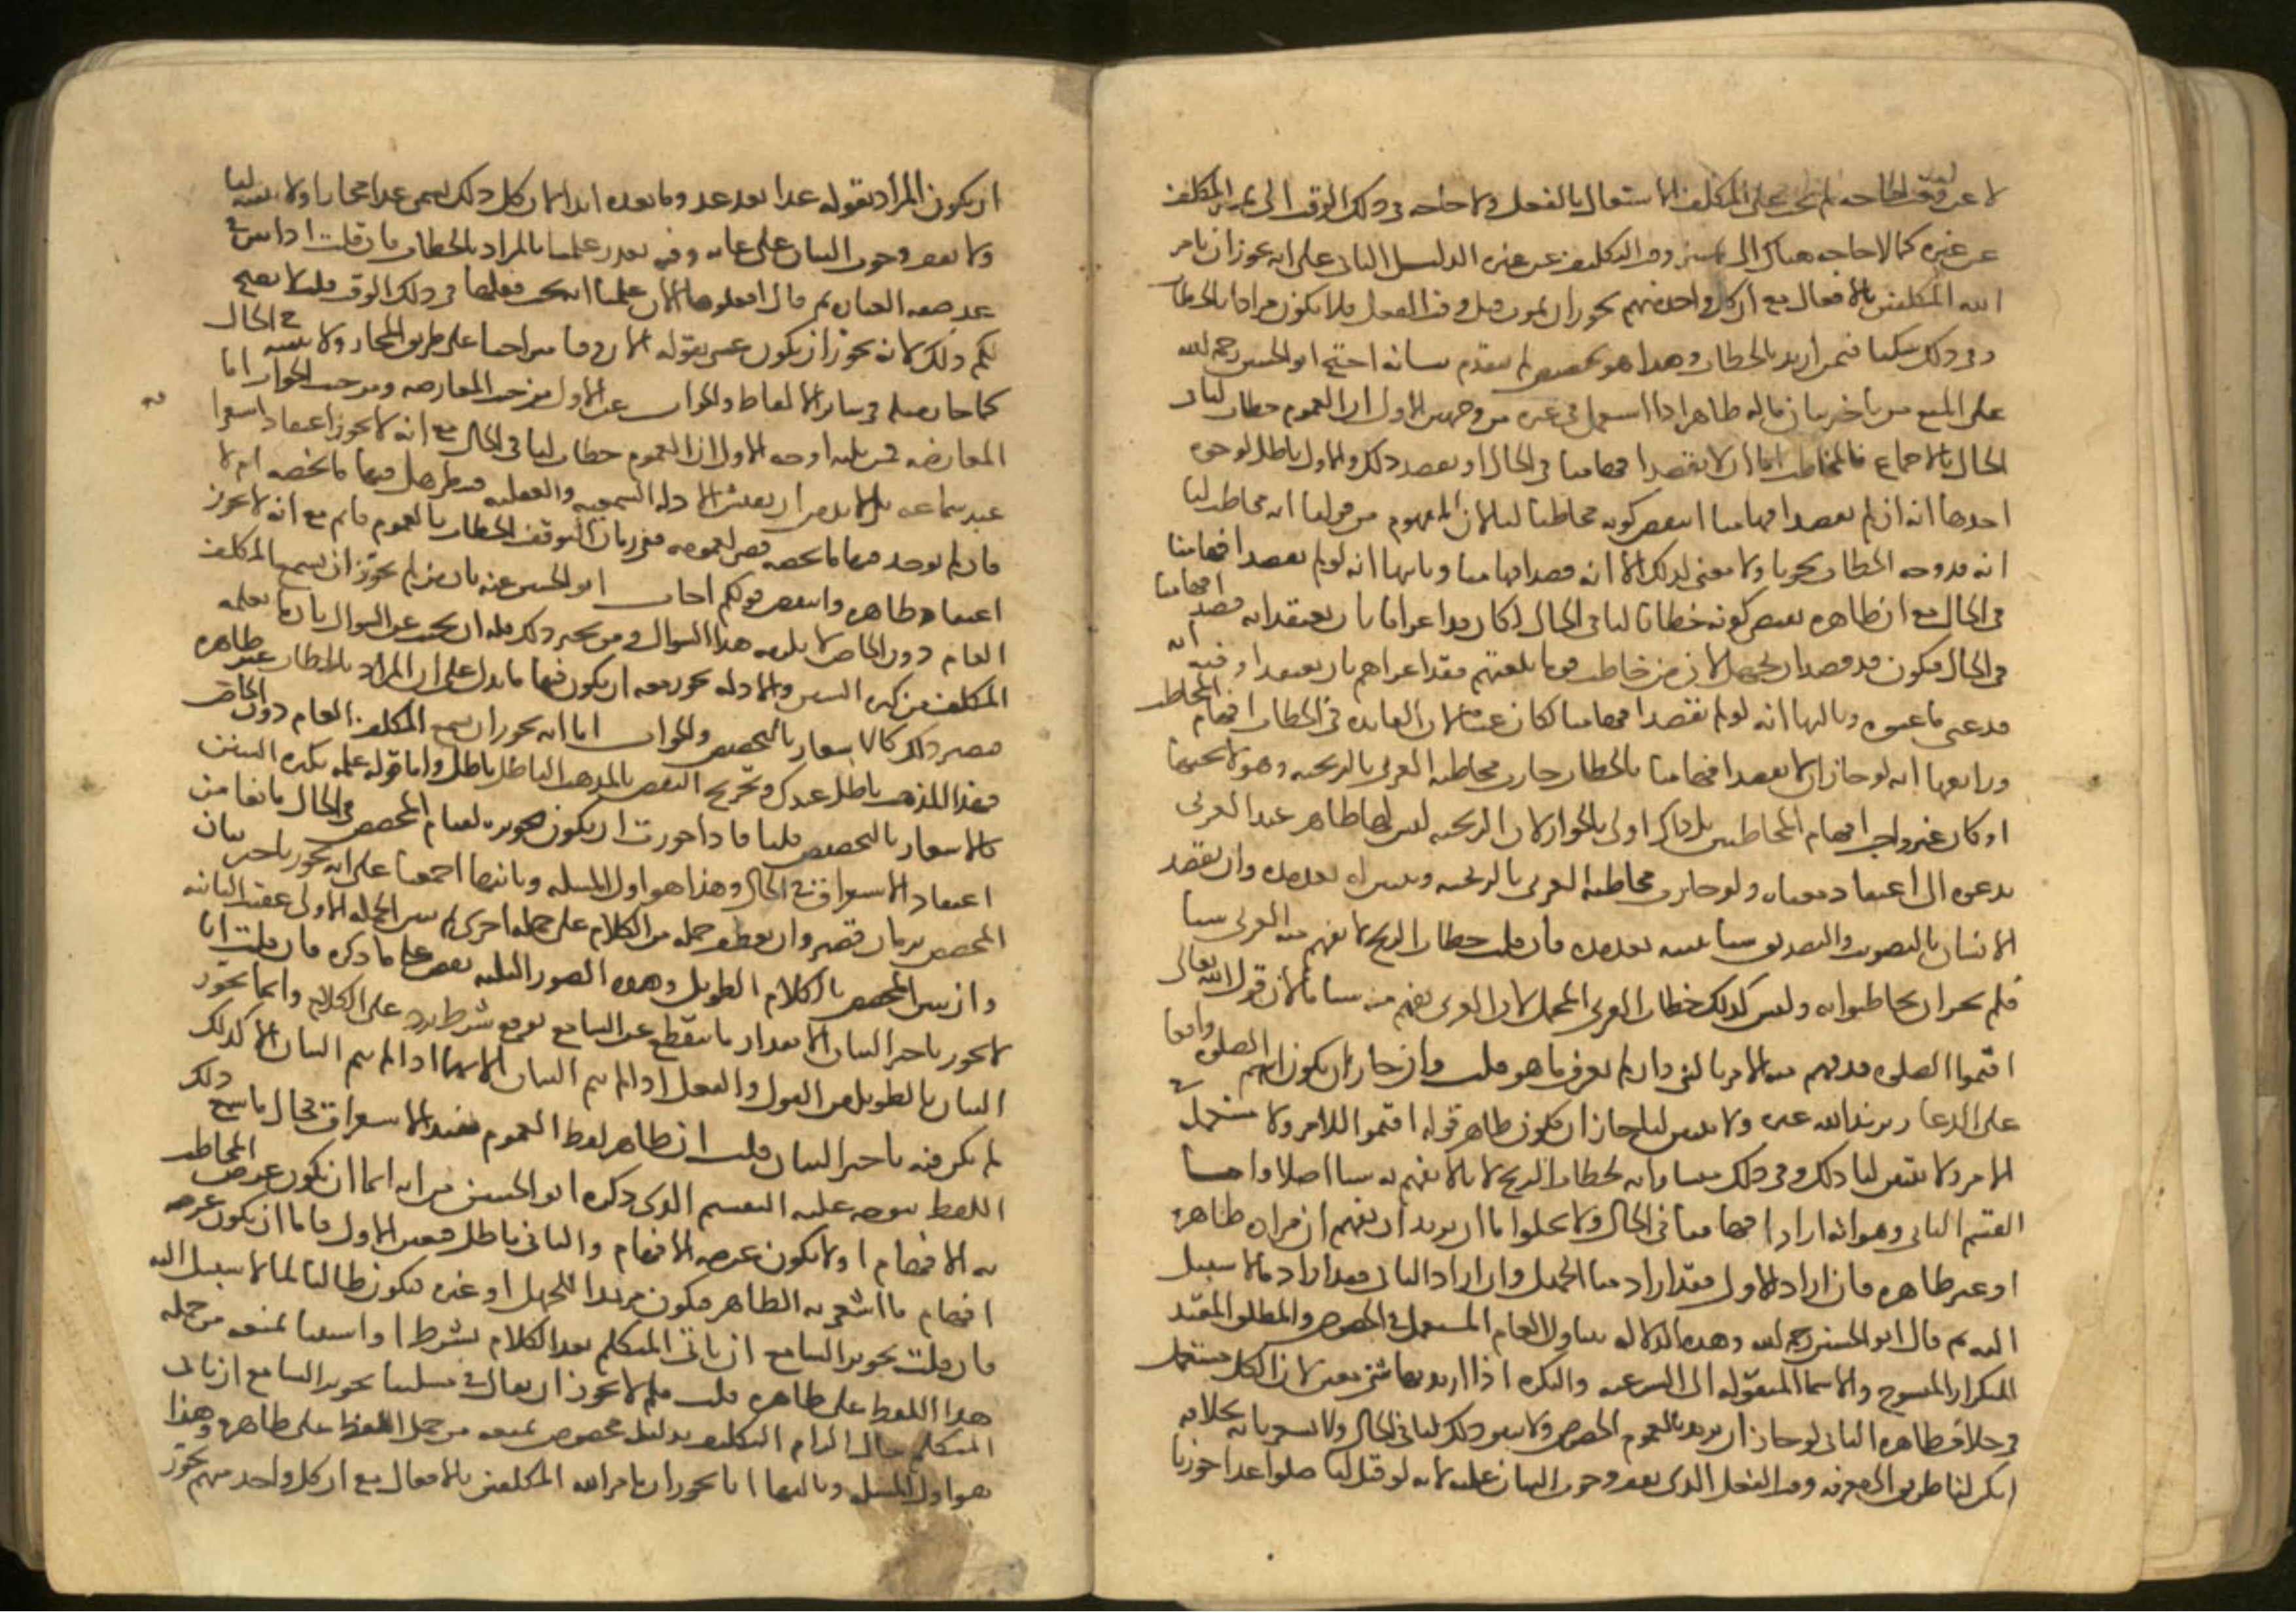 لا عن وقت الحاجة لم يجب على المكلف الاشتغال بالفعل ولا حاجة في ذلك الوقت الى تميز المكلف
عن غيره كما لا حاجة هناك الى تمييز وقت التكليف عن غيره الدليل الثاني على انه يجوز ان يامر
الله المكلفين بالافعال مع ان كل واحد منهم يجوز ان يموت قبل وقت الفعل فلا يكون مرادا بالخطاب
وفي ذلك شكنا فيمن اريد بالخطاب وهذا هو تخصيص لم يتقدم بيانه احتج ابو الحسين رحمه الله
على المنع من تاخير بيان ماله ظاهر اذا استعمل في غيره من وجهين الاول ان العموم خطاب لنا في
الحال بالاجماع فالمخاطب اما ان لا يقصد افهامنا في الحال او يقصد ذلك والاول باطل لوجوه
احدها انه ان لم يقصد افهامنا انتقض كونه مخاطبا لنا لان المفهوم من قولنا انه مخاطب لنا
انه قد وجه الخطاب نحونا ولا معنى لذلك الا انه قصد افهامنا وثانيها انه لو لم يقصد افهامنا
في الحال مع ان ظاهره يقتضي كونه خطابا لنا في الحال لكان قد اغرانا بان نعتقد انه قصد افهامنا
في الحال فيكون قد قصد ان نجهل لان من خاطب قوما بلغتهم فقد اغراهم بان يعتقدوا فيه انه
قد عنى ما عنوه وثالثها انه لو لم يقصد افهامنا لكان عبثا لان الفائدة في الخطاب افهام المخاطب
ورابعها انه لو جاز ان لا يقصد افهامنا بالخطاب جازت مخاطبة العربي بالزنجية وهو لا يحسنها
اذ كان غير واجب افهام المخاطبين بل ذاك اولى بالجواز لان الزنجية ليس لها ظاهر عند العربي
يدعوه الى اعتقاد معناه ولو جازت مخاطبة العربي بالزنجية ويبين له بعد مدة وان يقصد
الانسان بالتصويت والتصدية شيئا يبينه بعد مدة فان قلت خطاب الزنج لا يفهم منه العربي شيئا
فلم يجز ان يخاطبوا به وليس كذلك خطاب العربي المجمل لان العربي يفهم منه شيئا ما لان قول الله تعالى
اقيموا الصلوة قد فهم منه الامر بالشي وان لم يعرف ما هو قلت وان جاز ان يكون اسم الصلوة واقعا
على الدعا ويريد الله غيره ولا يبين لنا جاز ان يكون ظاهر قوله اقيموا للامر ولا يستعمل في
الامر ولا يتبين لنا ذلك وفي ذلك مساواته لخطاب الزنج لانا لا نفهم به شيئا اصلا واما
القسم الثاني وهو انه اراد افهامنا في الحال ولا يخلوا اما ان يريد ان نفهم ان مراده ظاهره
او غير ظاهره فان اراد الاول فقد اراد منا الجهل وان اراد الثاني فقد اراد مالا سبيل
اليه ثم قال ابو الحسين رحمه الله وهذه الدلالة تتناول العام المستعمل في الخصوص والمطلق المقيد
التكرار المنسوخ والاسما المنقولة الى الشرعية والنكرة اذا اريد بها شي معين لان الكل مستعمل
في خلاف ظاهره الثاني لو جاز ان يريد بالعموم الخصوص ولا يبين ذلك لنا في الحال ولا يشعرنا بخلافه
لم يكن لنا طريق الى معرفة وقت الفعل الذي يقف وجوب البيان عليه لانه لو قيل لنا صلوا غدا جوزنا
ان يكون المراد بقوله غدا بعد غد وما بعده ابدا لان كل ذلك يسمى غدا مجازا ولا يبينه لنا
ولا يقف وجوب البيان على غاية وفيه تعذر علمنا بالمراد بالخطاب فان قلت اذا بين في
غد صفة العبادة ثم قال افعلوها الان علمنا انه يجب فعلها في ذلك الوقت قلنا لا يصح
لكم ذلك لانه يجوز ان يكون عنى بقوله الان وقتا متراخيا على طريق المجاز ولا يبينه في الحال
كما جاز مثله في سائر الالفاظ والجواب عن الاول من حيث المعارضة ومن حيث الجواب اما
المعارضة فمن ثلثة اوجه الاول ان العموم خطاب لنا في الحال مع انه لا يجوز اعتقاد استغراقه
عند سماعه بل لا بد من ان يفتش الادلة السمعية والعقلية فينظر هل فيها ما يخصه ام لا
فان لم يوجد فيها ما يخصه قضى لعمومه ففي زمان التوقف الخطاب بالعموم قائم مع انه لا يجوز
اعتقاد ظاهره وانتقض قولكم اجاب ابو الحسين عنه بان من لم يجوز ان يسمع المكلف
العام دون الخاص لا يلزمه هذا السوال ومن يجيز ذلك فله ان يجيب عن السوال بان ما يعلمه
المكلف من كثرة السنن والادلة يجوز معه ان يكون فيها ما يدل على ان المراد بالخطاب غير ظاهره
فيصير ذلك كالاشعار بالتخصيص والجواب اما انه يجوز ان يسمع المكلف العام دون الخاص
فهذا المذهب باطل عندك وتخريج النقض بالمذهب الباطل باطل واما قوله علمه بكثرة السنن
كالاشعار بالتخصيص قلنا فاذا جوزت ان يكون تجويزه لقيام المخصص في الحال مانعا من
اعتقاد الاستغراق في الحال وهذا هو اول المسئلة وثانيها اجمعنا على انه يجوز تاخير بيان
المخصص بزمان قصير وان يعطف جملة من الكلام على جملة اخرى ثم يبين الجملة الاولى عقيب الثانية
وان يبين المخصص بالكلام الطويل وهذه الصور الثلثة نقض على ما ذكره فان قلت انا
لا نجوز تاخير البيان الا بمقدار ما ينقطع عن السامع توقع شرط يرد على الكلام وانما يجوز
البيان بالطويل من القول والفعل اذا لم يتم البيان الا بهما اذ لم يتم البيان الا كذلك
لم يكن فيه تاخير البيان قلت ان ظاهر لفظ العموم يفيد الاستغراق فحال ما سمع ذلك
اللفظ يتوجه عليه التقسيم الذي ذكره ابو الحسين من انه اما ان يكون غرض المخاطب
به الافهام او لا يكون غرضه الافهام والثاني باطل فتعين الاول فاما ان يكون غرضه
افهام ما اشعر به الظاهر فيكون مريدا للجهل او غيره فيكون طالبا لما لا سبيل اليه
فان قلت تجويز السامع ان ياتي المتكلم بعد الكلام بشرط او استثنا يمنعه من حمله
هذا اللفظ على ظاهره قلت فلم لا يجوز ان يقال في مسئلتنا تجويز السامع ان ياتي
المتكلم حال الزام التكليف بدليل مخصوص يمنعه من حمل اللفظ على ظاهره وهذا
هو اول المسئلة وثالثها انا نجوز ان يامر الله المكلفين بالافعال مع ان كل واحد منهم يجوز